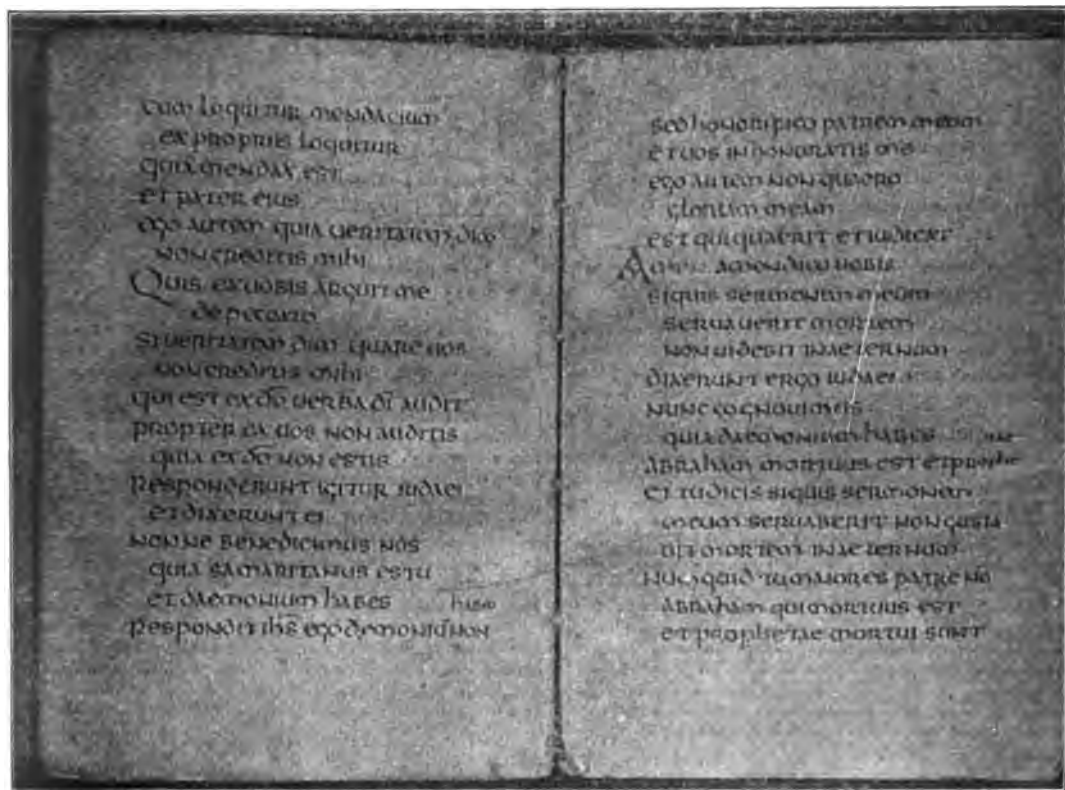 cum loquitur mendacium
ex propriis loquitur
quia mendax est
et pater eius
ego autem quia ueritatem dico
non creditis mihi
Quis ex uobis arguit me
de peccato
si ueritatem dico quare uos
non creditis mihi
qui est ex d̄o uerba d̄i audit
propterea uos non auditis
quia ex d̄o non estis
Responderunt igitur iudaei
et dixerunt ei
nonne bene dicimus nos
quia samaritanus es tu
et daemonium habes
Respondit ih̄s ego demoniū non
habeo
sed honorifico patrem meum
et uos inhonoratis me
ego autem non quaero
gloriam meam
est qui quaerit et iudicat
Amen amen dico uobis
si quis sermonem meum
seruauerit mortem
non uidebit in aeternum
dixerunt ergo iudaei
nunc cognouimus
quia daemonium habes
abraham mortuus est et prophe
tae
et tu dicis si quis sermonem
meum seruaberit non gusta
bit mortem in aeternum
numquid tu maior es patre n̄o
abraham qui mortuus est
et prophetae mortui sunt